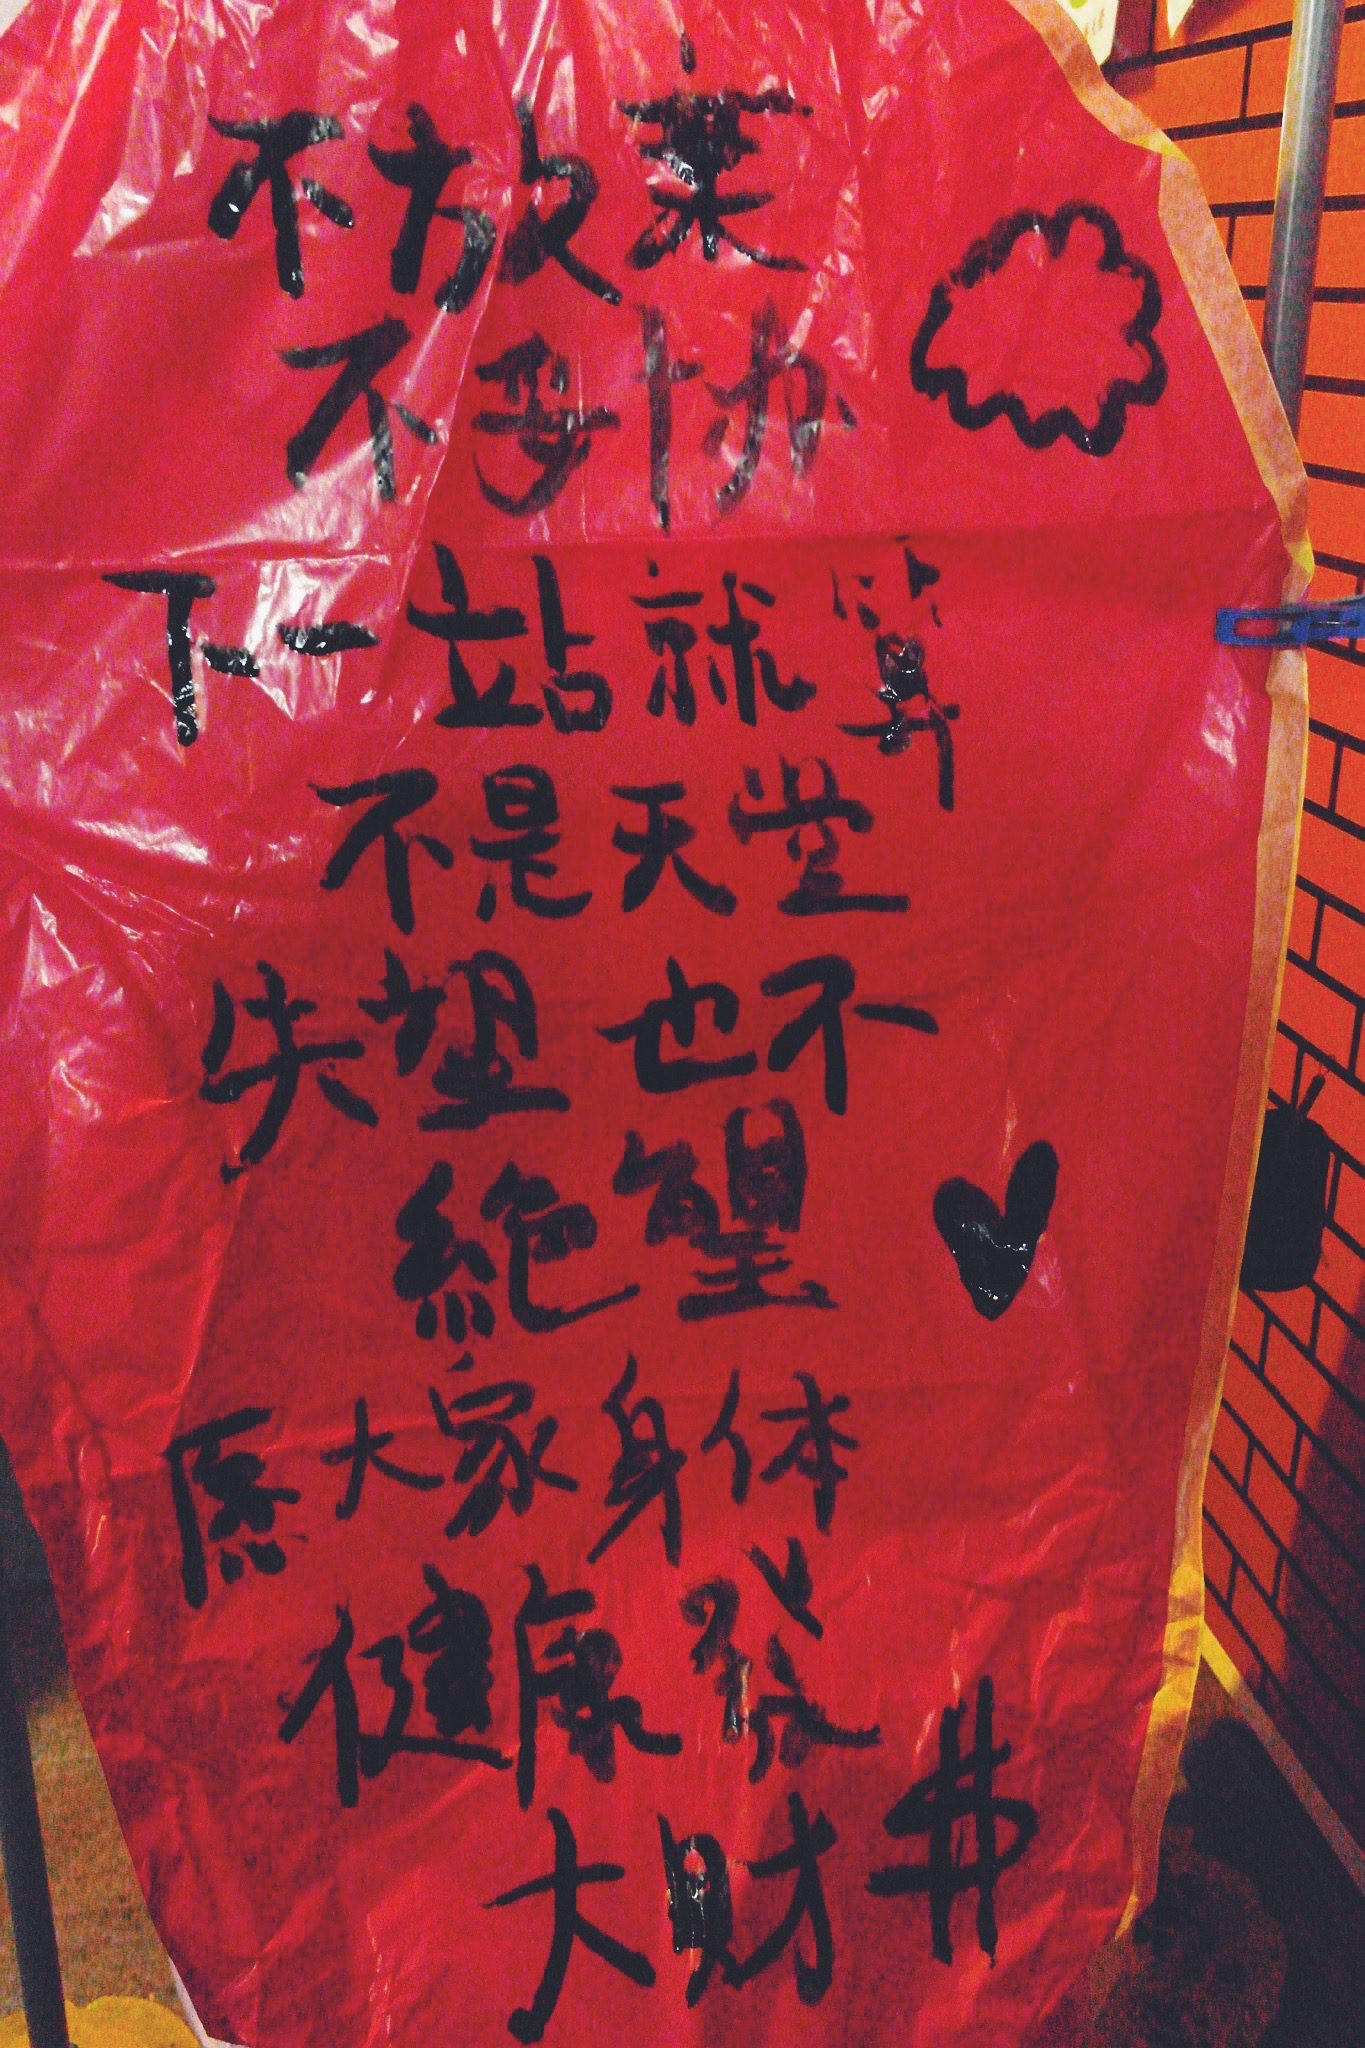 不放棄
不妥協
下一站就算
不是天堂
失望也不
絕望
大家身体
健康發
大財 $